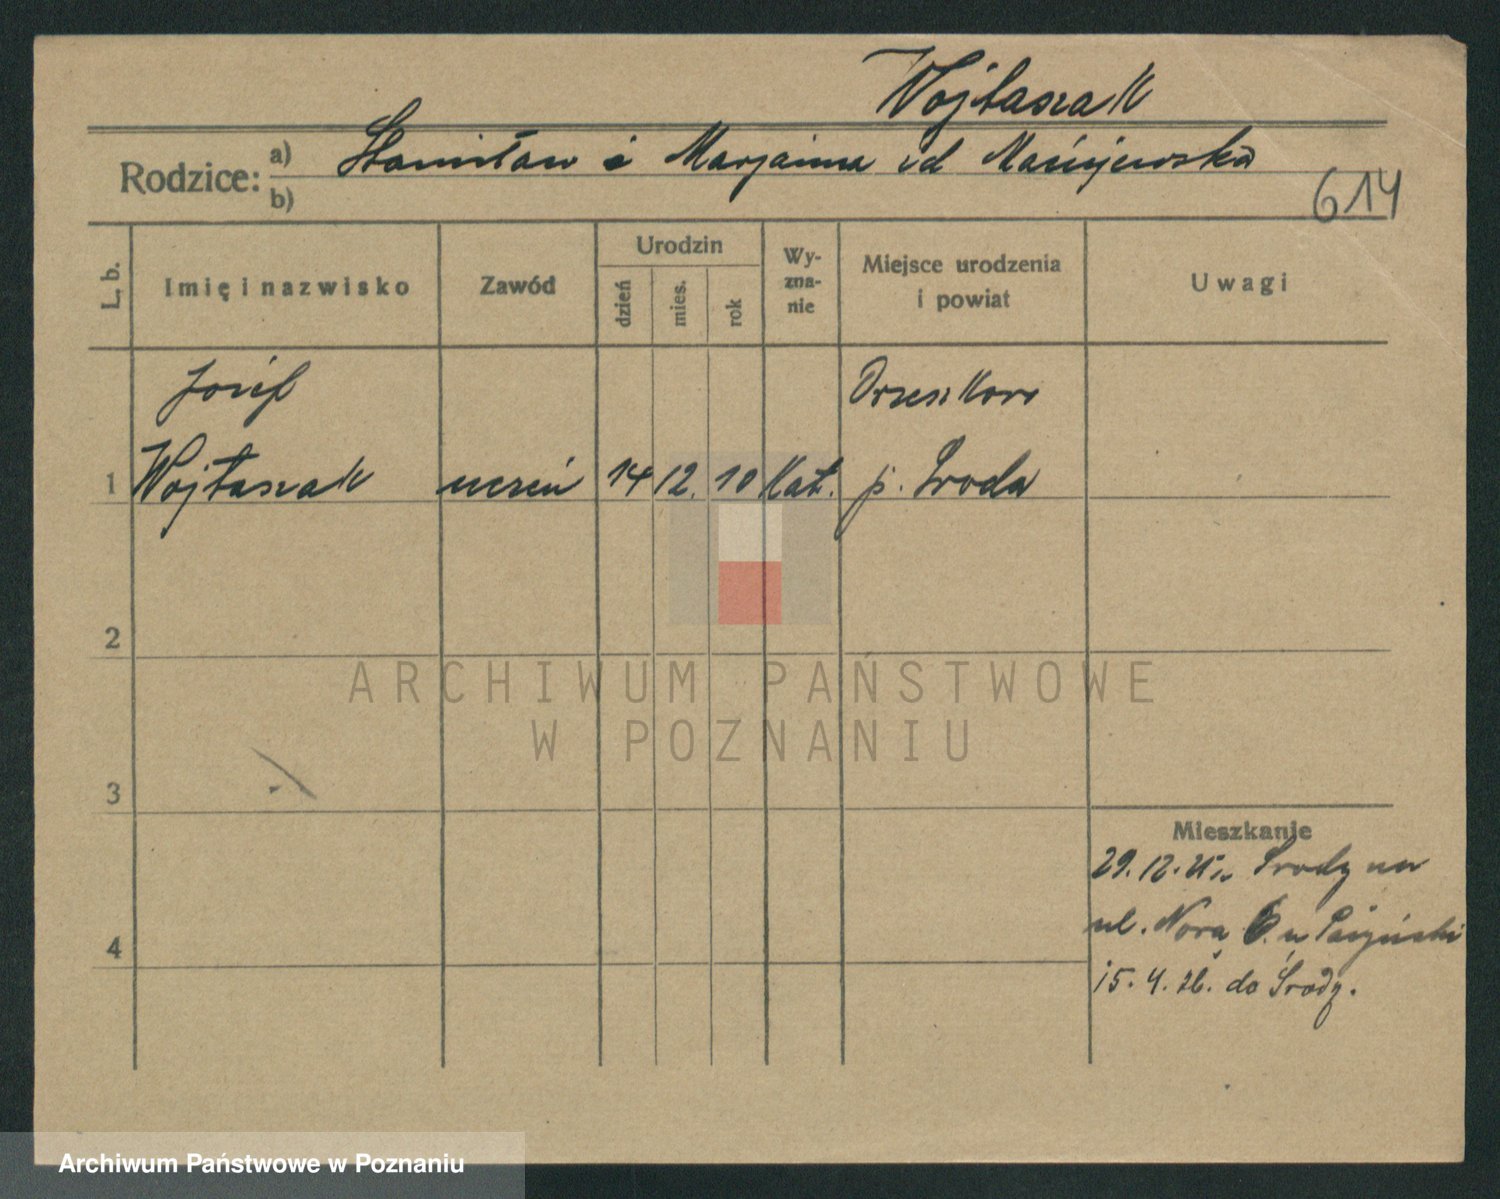 Wojtaszak
Rodzice: a) Stanisław i Marjanna zd Maciejewska
b)
614
L. b. Imię i nazwisko Zawód Urodzin dzień mies. rok Wy-zna-nie Miejsce urodzenia i powiat Uwagi
Józef Orzeszkowo
1 Wojtaszak uczeń 14 12. 10 Kat. p. Środa
2
ARCHIWUM PAŃSTWOWE
W POZNANIU
3
Mieszkanie
29.12. Środy
4 ul. Nowa 6. u
15. 4. 26. do Środy.
Archiwum Państwowe w Poznaniu